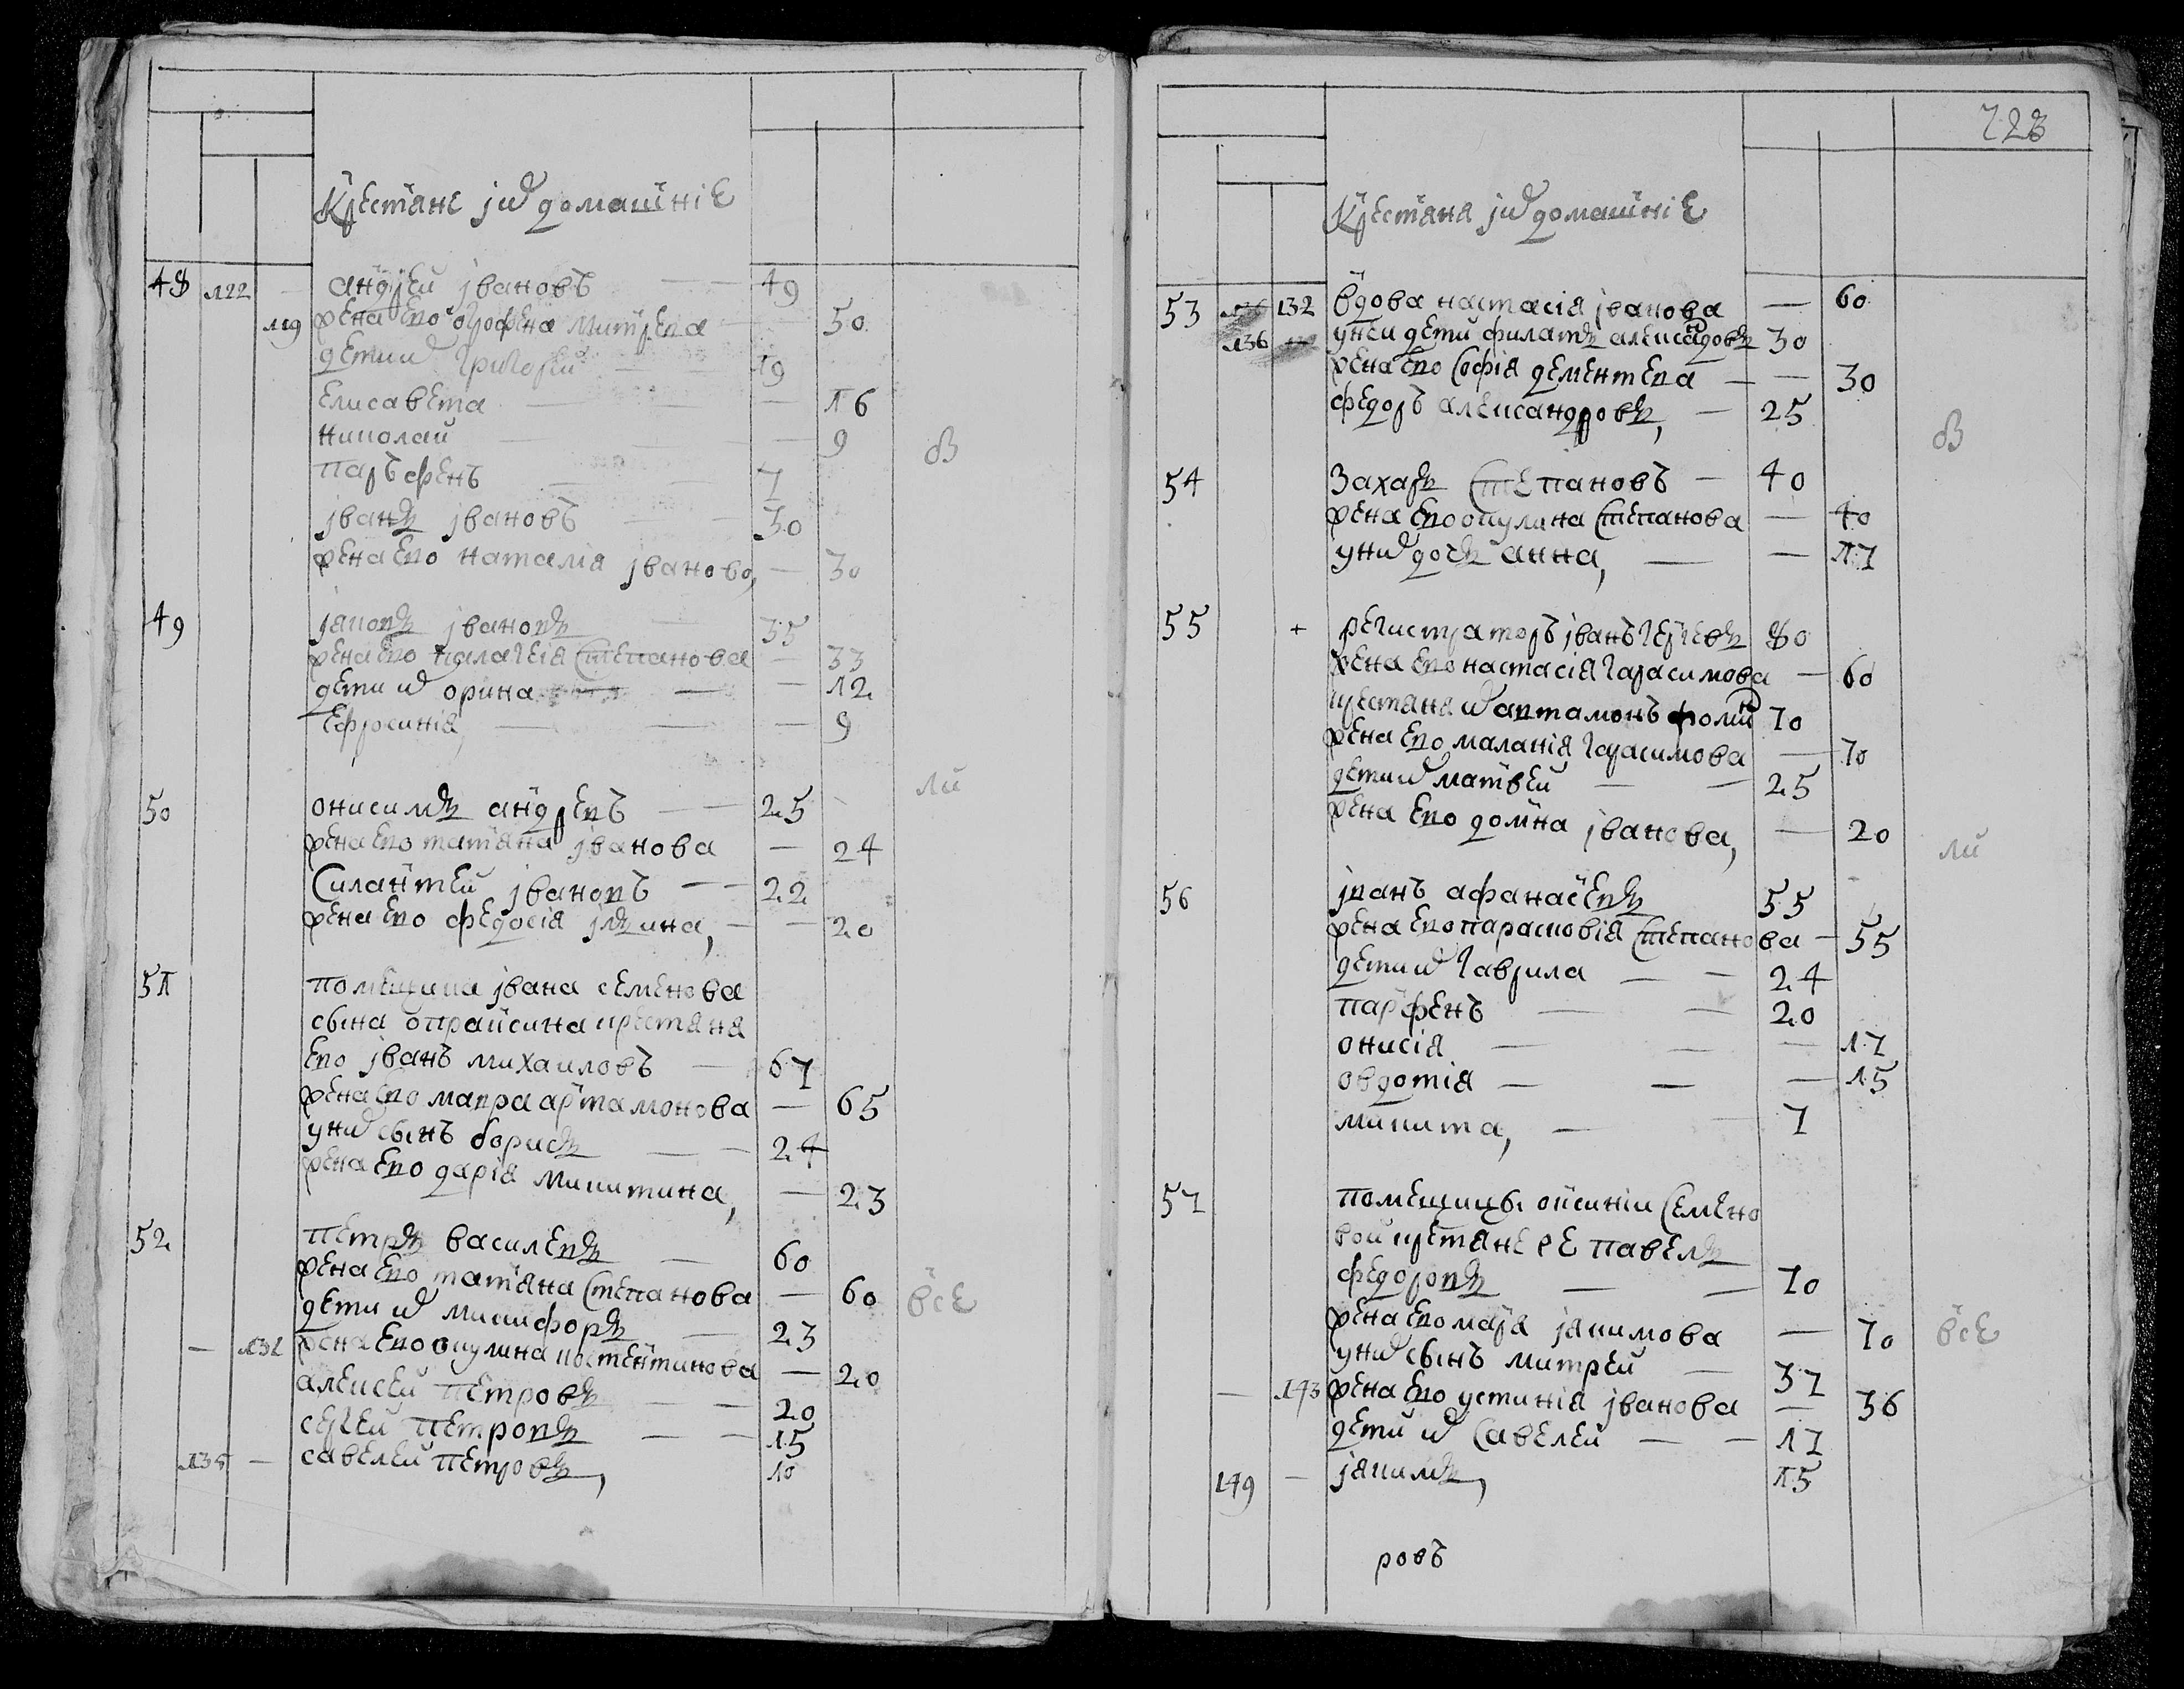 Крестяне и домашние
48 122 – андрей івановъ — 49
119 жена его офрофена митрева — 50
дети их григорей — 19
елисавета — 16
николай — 9
парфенъ — 7
іванъ івановъ — 30
жена его наталія іваново, — 30
49 іяковъ івановъ — 35
жена его палагеія степанова — 33
дети их орина — 12
ефросинія, — 9
50 онисимъ андревъ — 25
жена его татяна іванова — 24
силантей івановъ — 22
жена его федосія ілина, — 20
51 помещика івана семенова
сына опрайсина крестяня
его іванъ михаиловъ — 67
жена его мавра артамонова — 65
у них сынъ борисъ — 24
жена его дарія микитина, — 23
52 петръ василевъ — 60
жена его татяна степанова — 60
дети их микифоръ — 23
– 132 жена его окулина костентинова — 20
алексей петровъ — 20
сергей петровъ — 15
135 – савелей петровъ, 10
об
ли
все
723
Крестяня и домашние
53 132 вдова настасія іванова — 60
136 у неи дети филатъ александовъ 30
жена его софія дементева — 30
федоръ александровъ, — 25
54 захаръ степановъ — 40
жена его окулина степанова — 40
у них дочъ анна, — 17
55 + регистраторъ іванъ сергевъ 80
жена его настасія гарасимова — 60
крестяня их артамонъ фомин 70
жена его маланія гарасимова — 70
дети их матвей — 25
жена его домна іванова, — 20
56 іванъ афанасевъ 55
жена его парасковія степанова — 55
дети их гаврила — 24
парфенъ — 20
онисія — 17
овдотія — 15
микита, — 7
57 помещицы оксиніи семено
вои крстяне ее павелъ
федоровъ — 70
жена его маря іякимова — 70
у них сынъ митрей — 37
– 143 жена его устинія іванова — 36
дети их савелей — 17
149 – іякимъ, 15
об
ли
все
ровъ